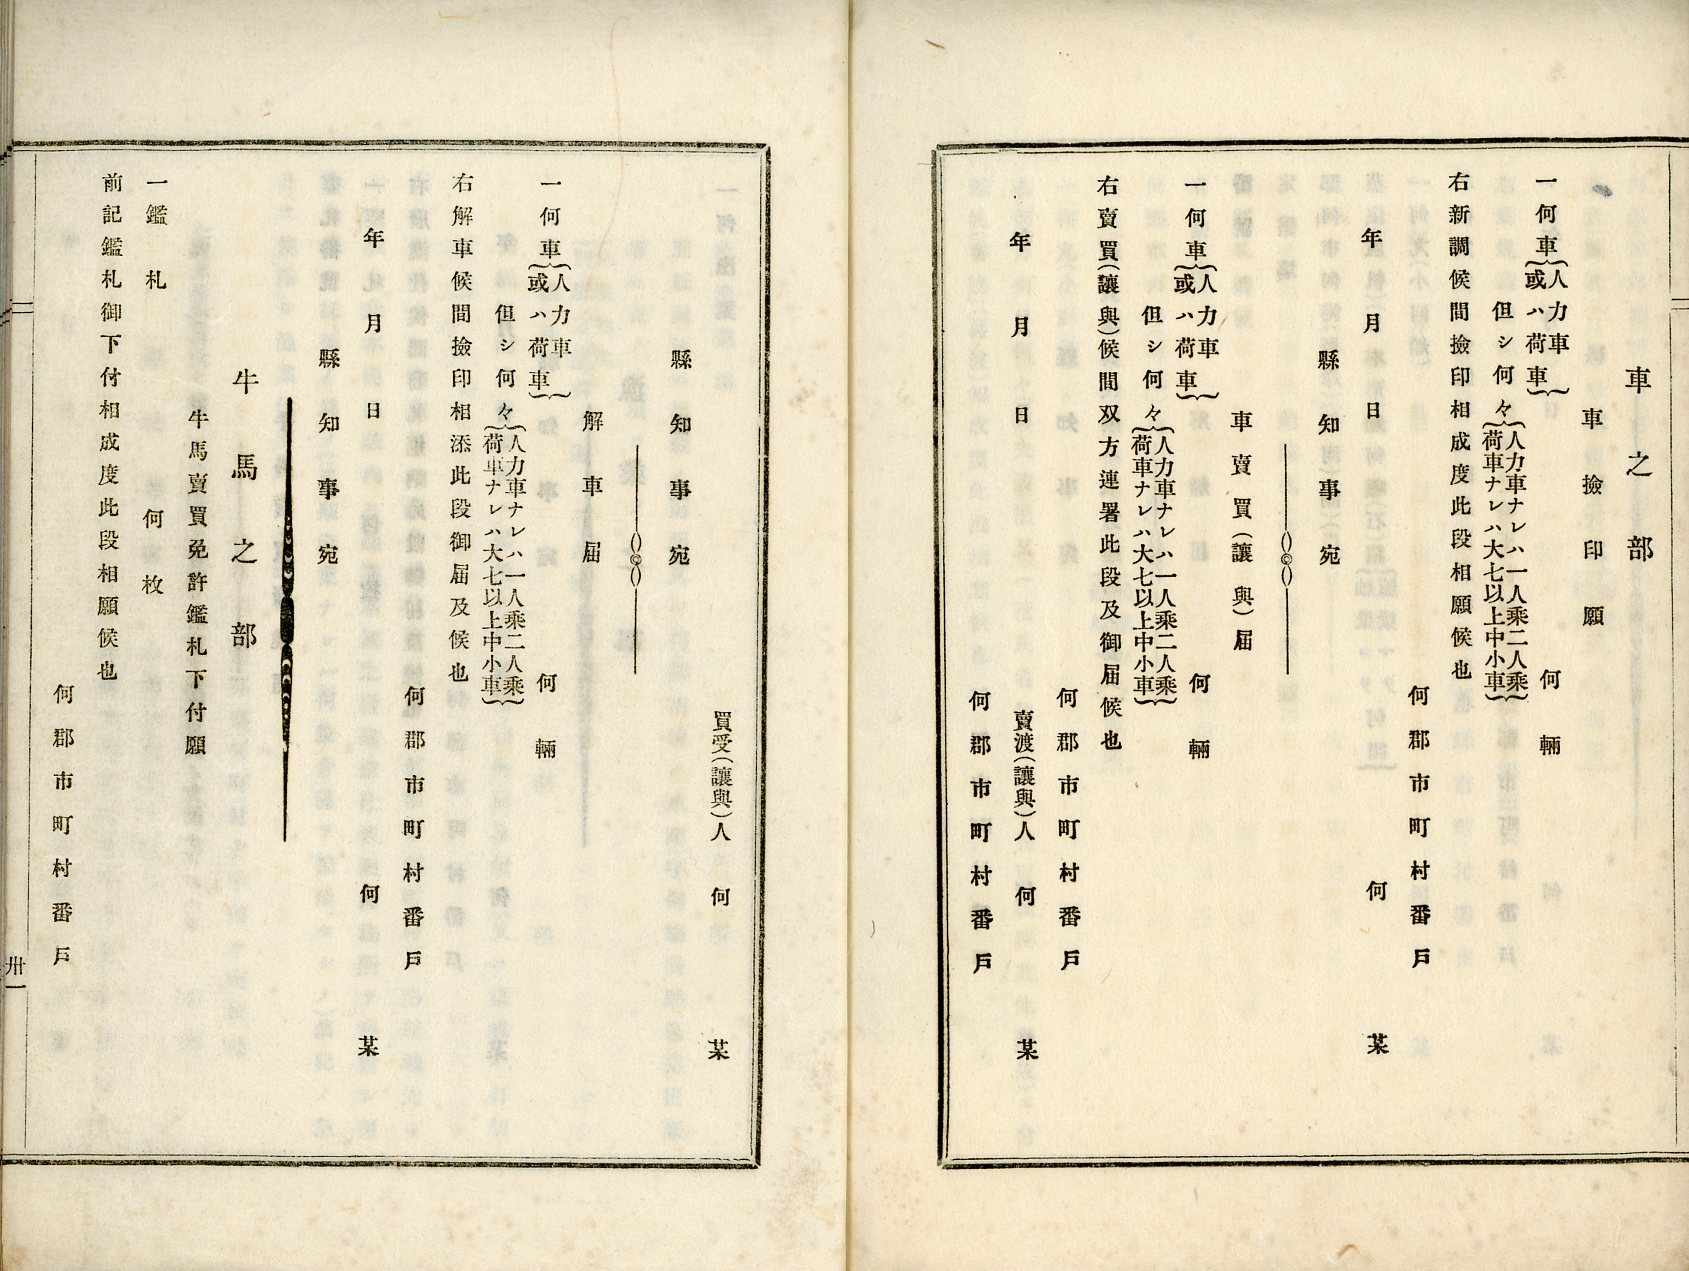 車之部
車撿印願
一何車{人力車或ハ荷車} 何輛
但シ何々{人力車ナレハ一人乘二人乘荷車ナレハ大七以上中小車}
右新調候間撿印相成度此段相願候也
何郡市町村番戶
年月日 何 某
縣知事宛
車賣買(讓與)屆
一何車{人力車或ハ荷車} 何輛
但シ何々{人力車ナレハ一人乘二人乘荷車ナレハ大七以上中小車}
右賣買(讓與)候間双方連署此段及御屆候也
何郡市町村番戶
年月日 賣渡(讓與)人 何 某
何郡市町村番戶
買受(讓與)人 何 某
縣知事宛
解車屆
一何車{人力車或ハ荷車} 何輛
但シ何々{人力車ナレハ一人乘二人乘荷車ナレハ大七以上中小車}
右解車候間撿印相添此段御屆及候也
何郡市町村番戶
年月日 何 某
縣知事宛
牛馬之部
牛馬賣買免許鑑札下付願
一鑑札 何枚
前記鑑札御下付相成度此段相願候也
何郡市町村番戶
卅一